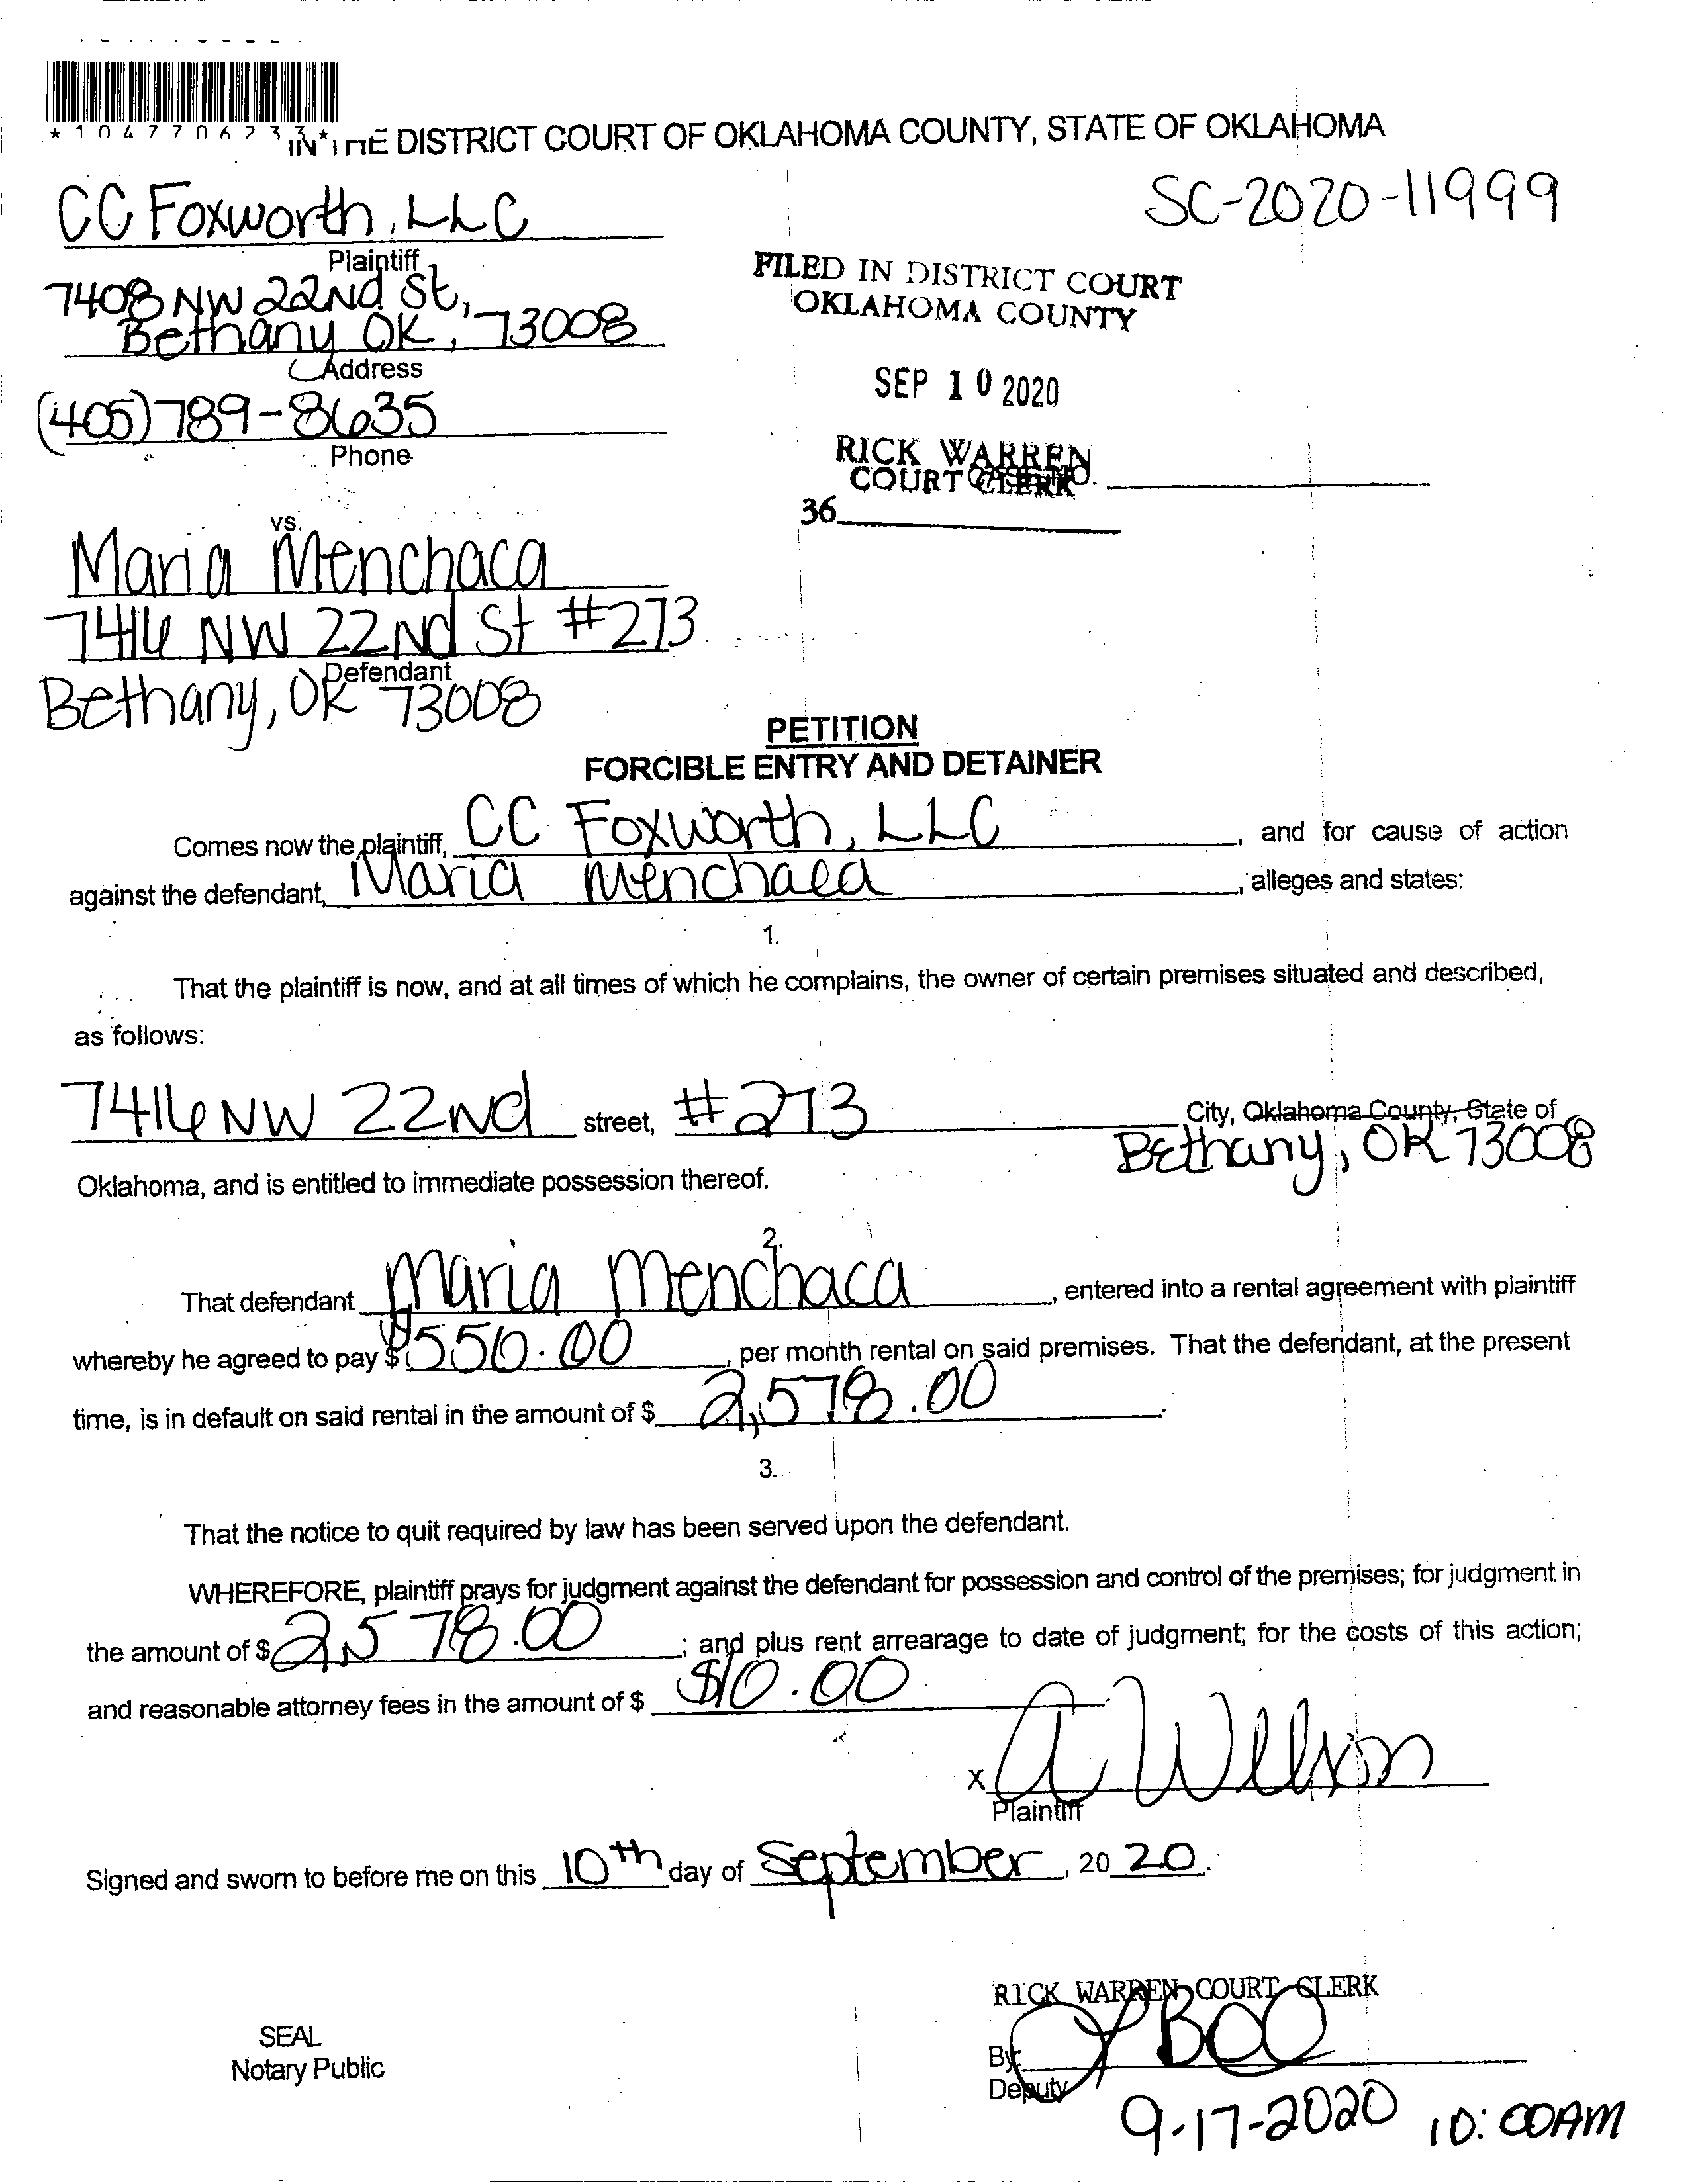 *1047706233*
IN THE DISTRICT COURT OF OKLAHOMA COUNTY, STATE OF OKLAHOMA
CC Foxworth, LLC
SC-2020-11999
Plaintiff
7408 NW 22nd St,
Bethany OK, 73008
Address
FILED IN DISTRICT COURT
OKLAHOMA COUNTY
SEP 10 2020
(405) 789-8635
Phone
RICK WARREN
COURT CLERK
CASE NO.
36
vs.
Maria Menchaca
7416 NW 22nd St #273
Defendant
Bethany, OK 73008
PETITION
FORCIBLE ENTRY AND DETAINER
Comes now the plaintiff, CC Foxworth, LLC, and for cause of action
against the defendant, Maria Menchaca, alleges and states:
1.
That the plaintiff is now, and at all times of which he complains, the owner of certain premises situated and described,
as follows:
7416 NW 22nd street, #273 City, Oklahoma County, State of
Bethany, OK 73008
Oklahoma, and is entitled to immediate possession thereof.
2.
That defendant Maria Menchaca, entered into a rental agreement with plaintiff
whereby he agreed to pay $ $550.00, per month rental on said premises. That the defendant, at the present
time, is in default on said rental in the amount of $ 2,578.00.
3.
That the notice to quit required by law has been served upon the defendant.
WHEREFORE, plaintiff prays for judgment against the defendant for possession and control of the premises; for judgment in
the amount of $ 2,578.00; and plus rent arrearage to date of judgment; for the costs of this action;
and reasonable attorney fees in the amount of $ $10.00
X A Wilson
Plaintiff
Signed and sworn to before me on this 10th day of September, 20 20.
RICK WARREN COURT CLERK
SEAL
Notary Public
By:
Deputy
9-17-2020 10:00AM